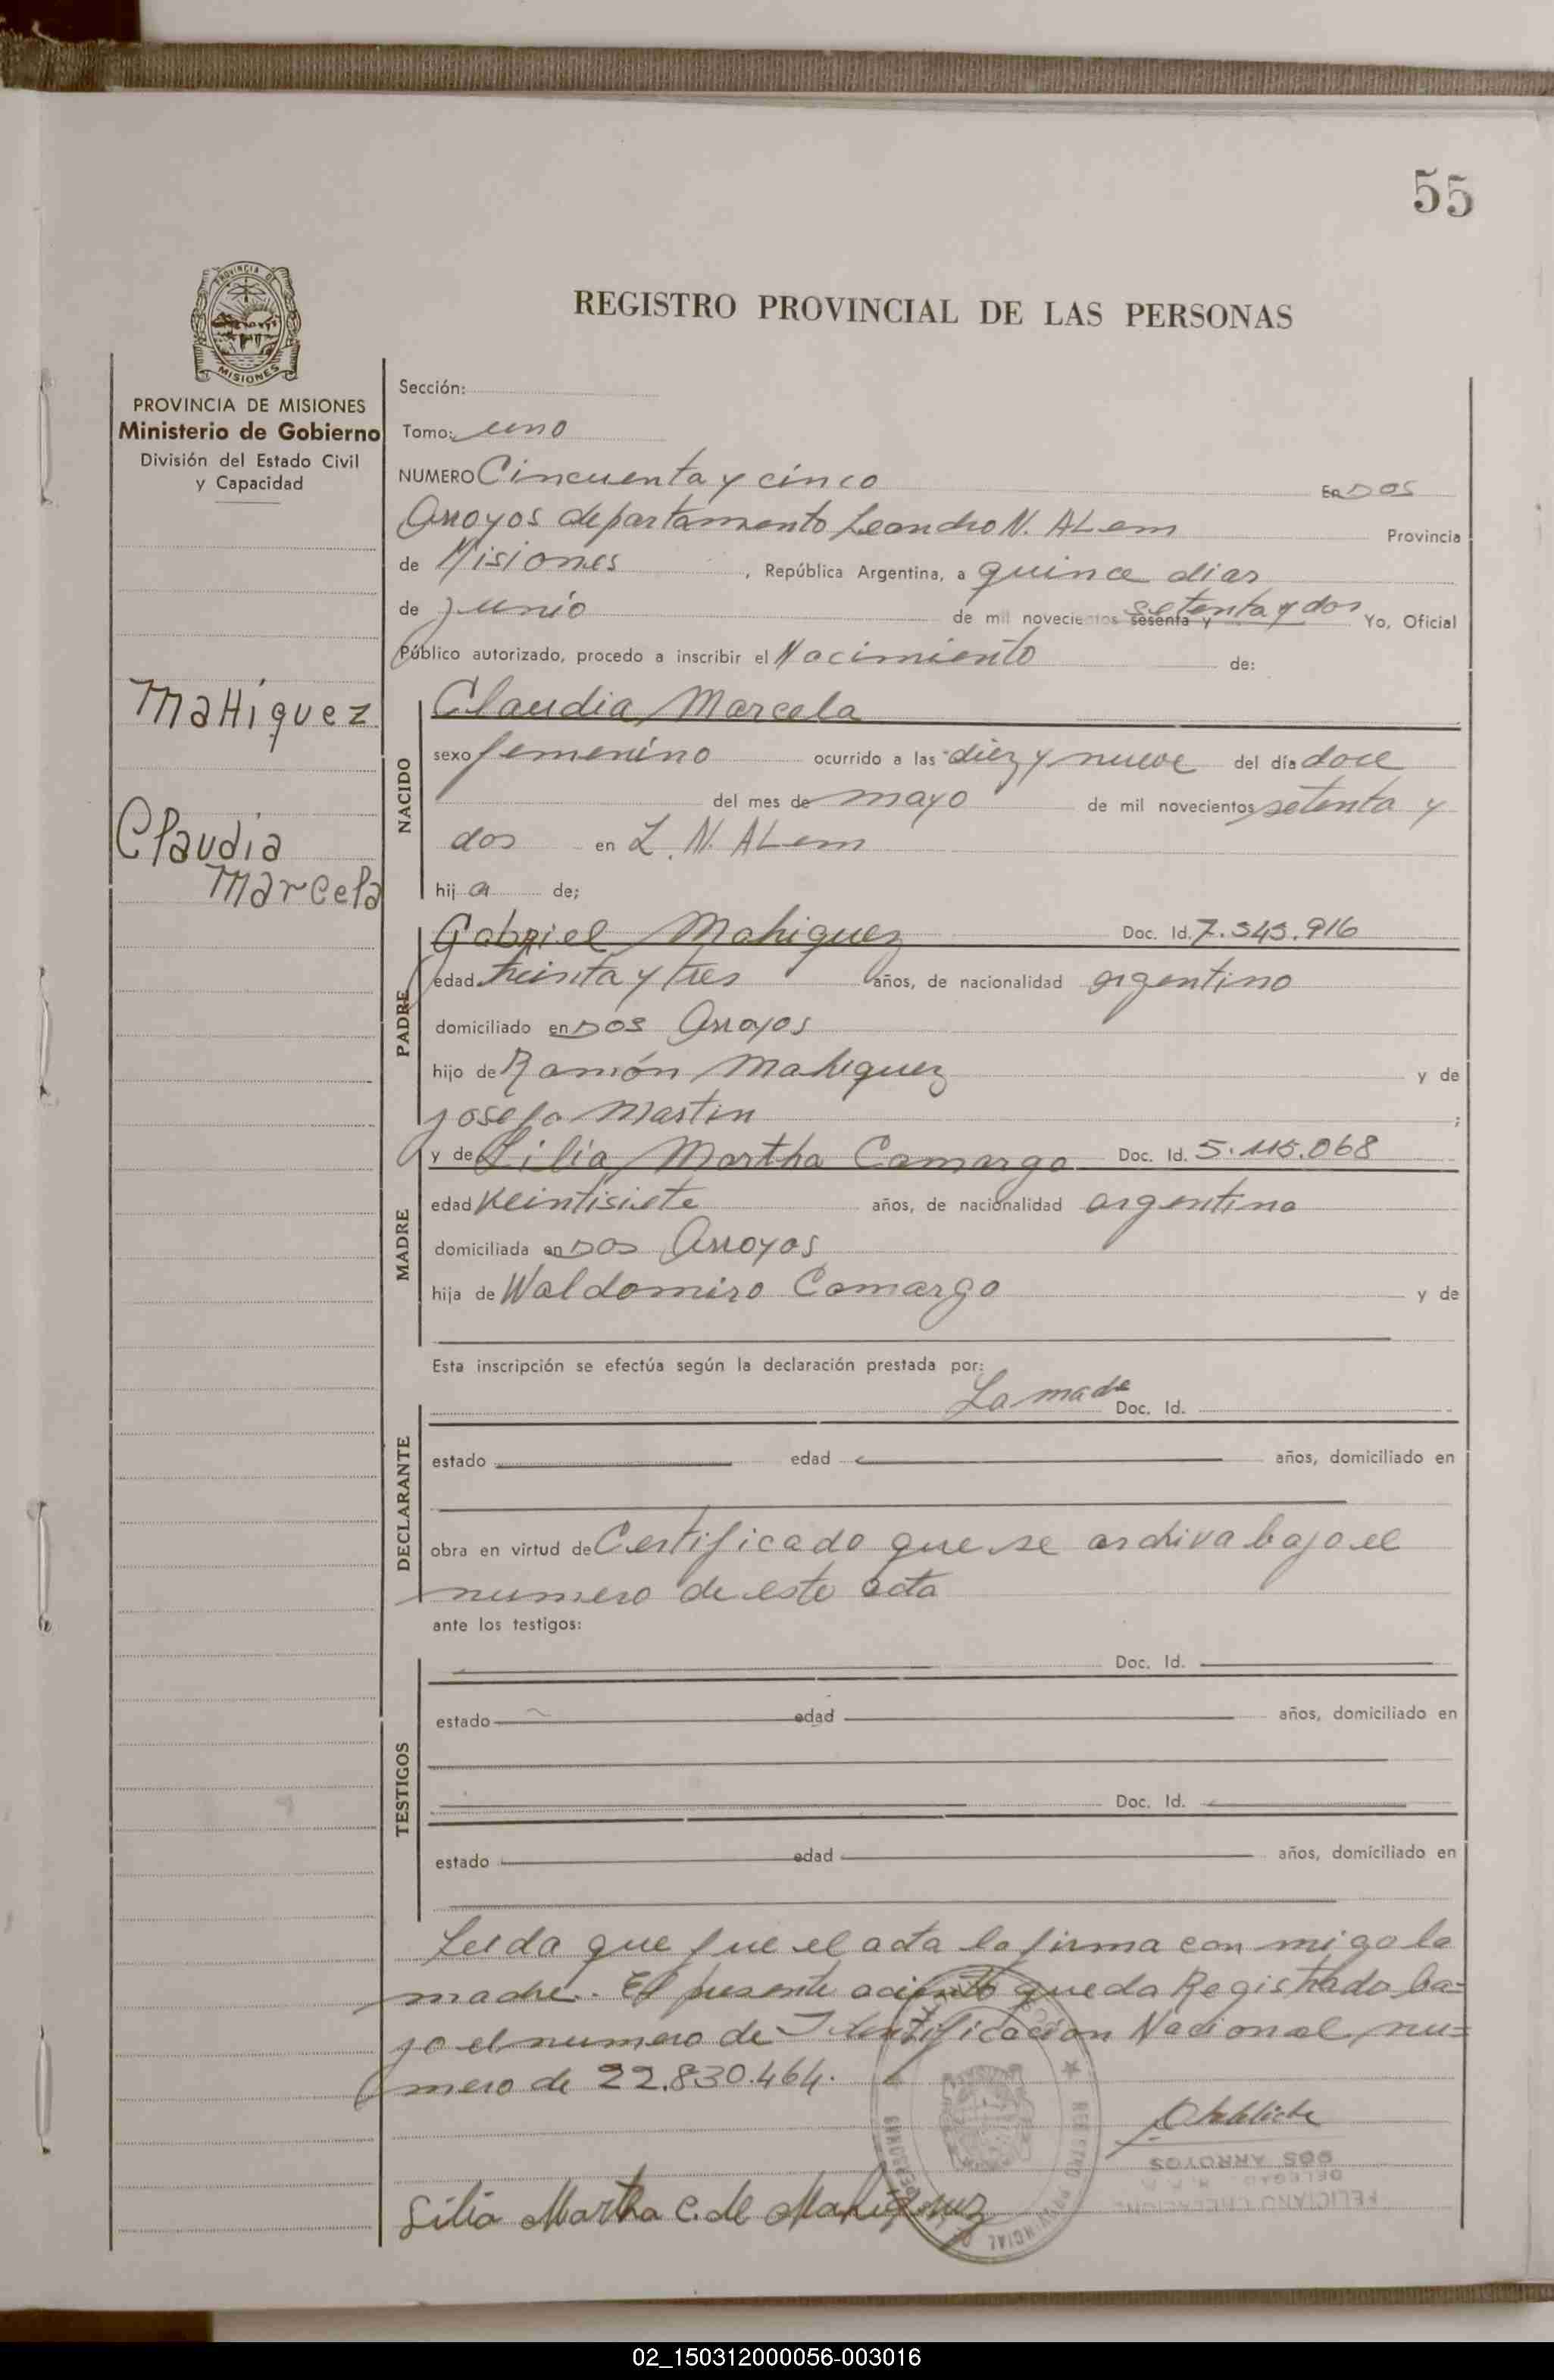 55
PROVINCIA DE
MISIONES
REGISTRO PROVINCIAL DE LAS PERSONAS
PROVINCIA DE MISIONES
Ministerio de Gobierno
División del Estado Civil
y Capacidad
Mahiquez
Claudia
Marcela
Sección:
Tomo: uno
NUMERO Cincuenta y cinco En Dos
Arroyos departamento Leandro N. ALem Provincia
de Misiones, República Argentina, a quince dias
de junio de mil novecientos sesenta y setenta y dos Yo, Oficial
Público autorizado, procedo a inscribir el Nacimiento de:
NACIDO
Claudia Marcela
sexo femenino ocurrido a las diez y nueve del día doce
del mes de mayo de mil novecientos setenta y
dos en L. N. ALem
hij a de;
PADRE
Gabriel Mahiquez Doc. Id. 7.545.916
edad treinta y tres años, de nacionalidad argentino
domiciliado en Dos Arroyos
hijo de Ramón Mahiquez y de
Josefa Martin ;
MADRE
y de Lilia Martha Camargo Doc. Id. 5.115.068
edad veintisiete años, de nacionalidad argentina
domiciliada en Dos Arroyos
hija de Waldomiro Camargo y de
Esta inscripción se efectúa según la declaración prestada por:
DECLARANTE
La madre Doc. Id.
estado edad años, domiciliado en
obra en virtud de Certificado que se archiva bajo el
numero de esta acta
ante los testigos:
TESTIGOS
Doc. Id.
estado edad años, domiciliado en
Doc. Id.
estado edad años, domiciliado en
Leida que fue el acta la firma con migo la
madre. El presente aciento queda Registrado ba=
jo el numero de Identificacion Nacional nu=
mero de 22.830.464.
DOS ARROYOS
Lilia Martha C. de Mahiquez
REGISTRO PROVINCIAL DE LAS PERSONAS
02_150312000056-003016